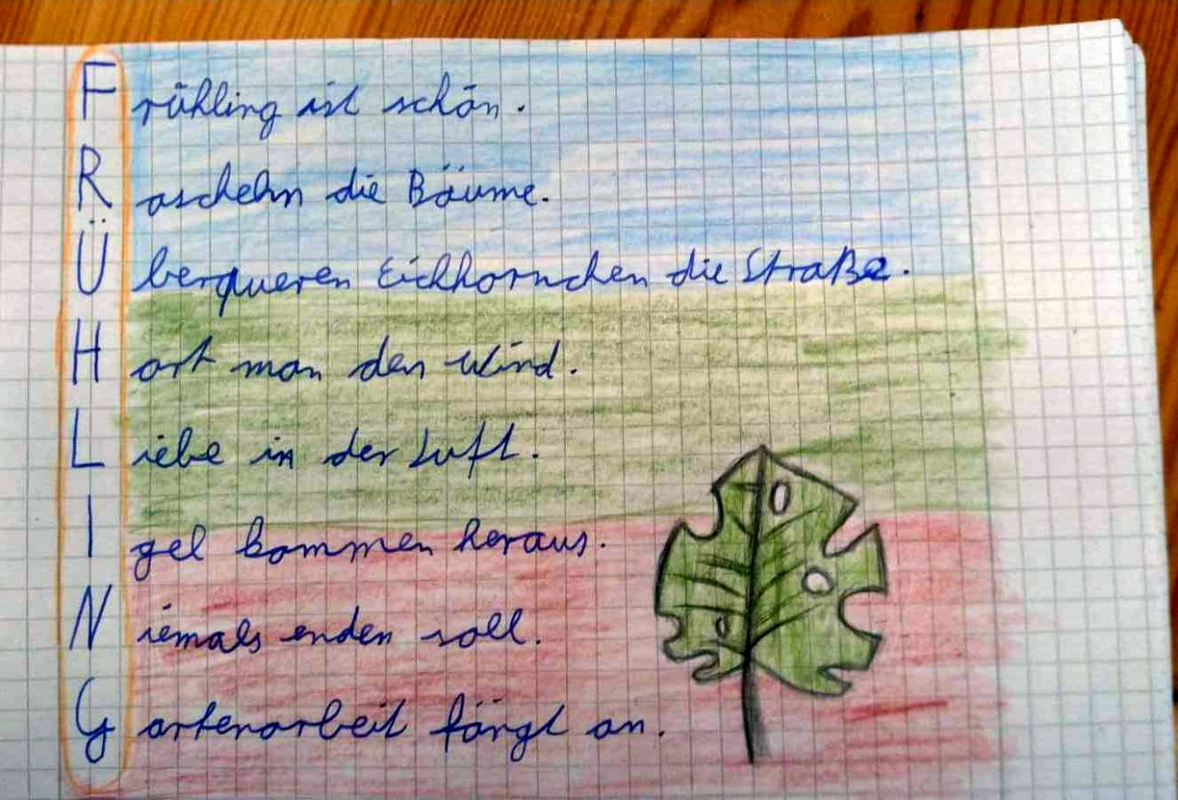 Frühling ist schön.
Raschehn die Bäume.
Überqueren Eichhörnchen die Straße.
Hört man den Wind.
Liebe in der Luft.
Igel kommen heraus.
Niemals enden soll.
Gartenarbeit fängt an.